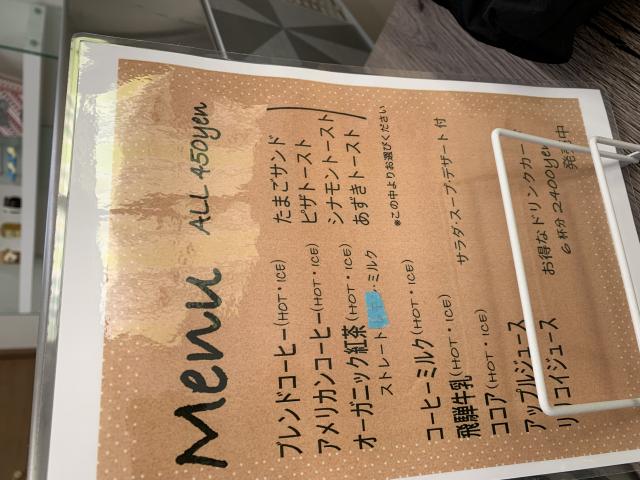 Menu ALL 450yen
ブレンドコーヒー(HOT・ICE)
アメリカンコーヒー(HOT・ICE)
オーガニック紅茶(HOT・ICE)
ストレート・ミルク
コーヒーミルク(HOT・ICE)
飛騨牛乳(HOT・ICE)
ココア(HOT・ICE)
アップルジュース
コイジュース
たまごサンド
ピザトースト
シナモントースト
あずきトースト
※この中よりお選びください
サラダ・スープ・デザート付
お得なドリンクカー
6杯分2400yen
中